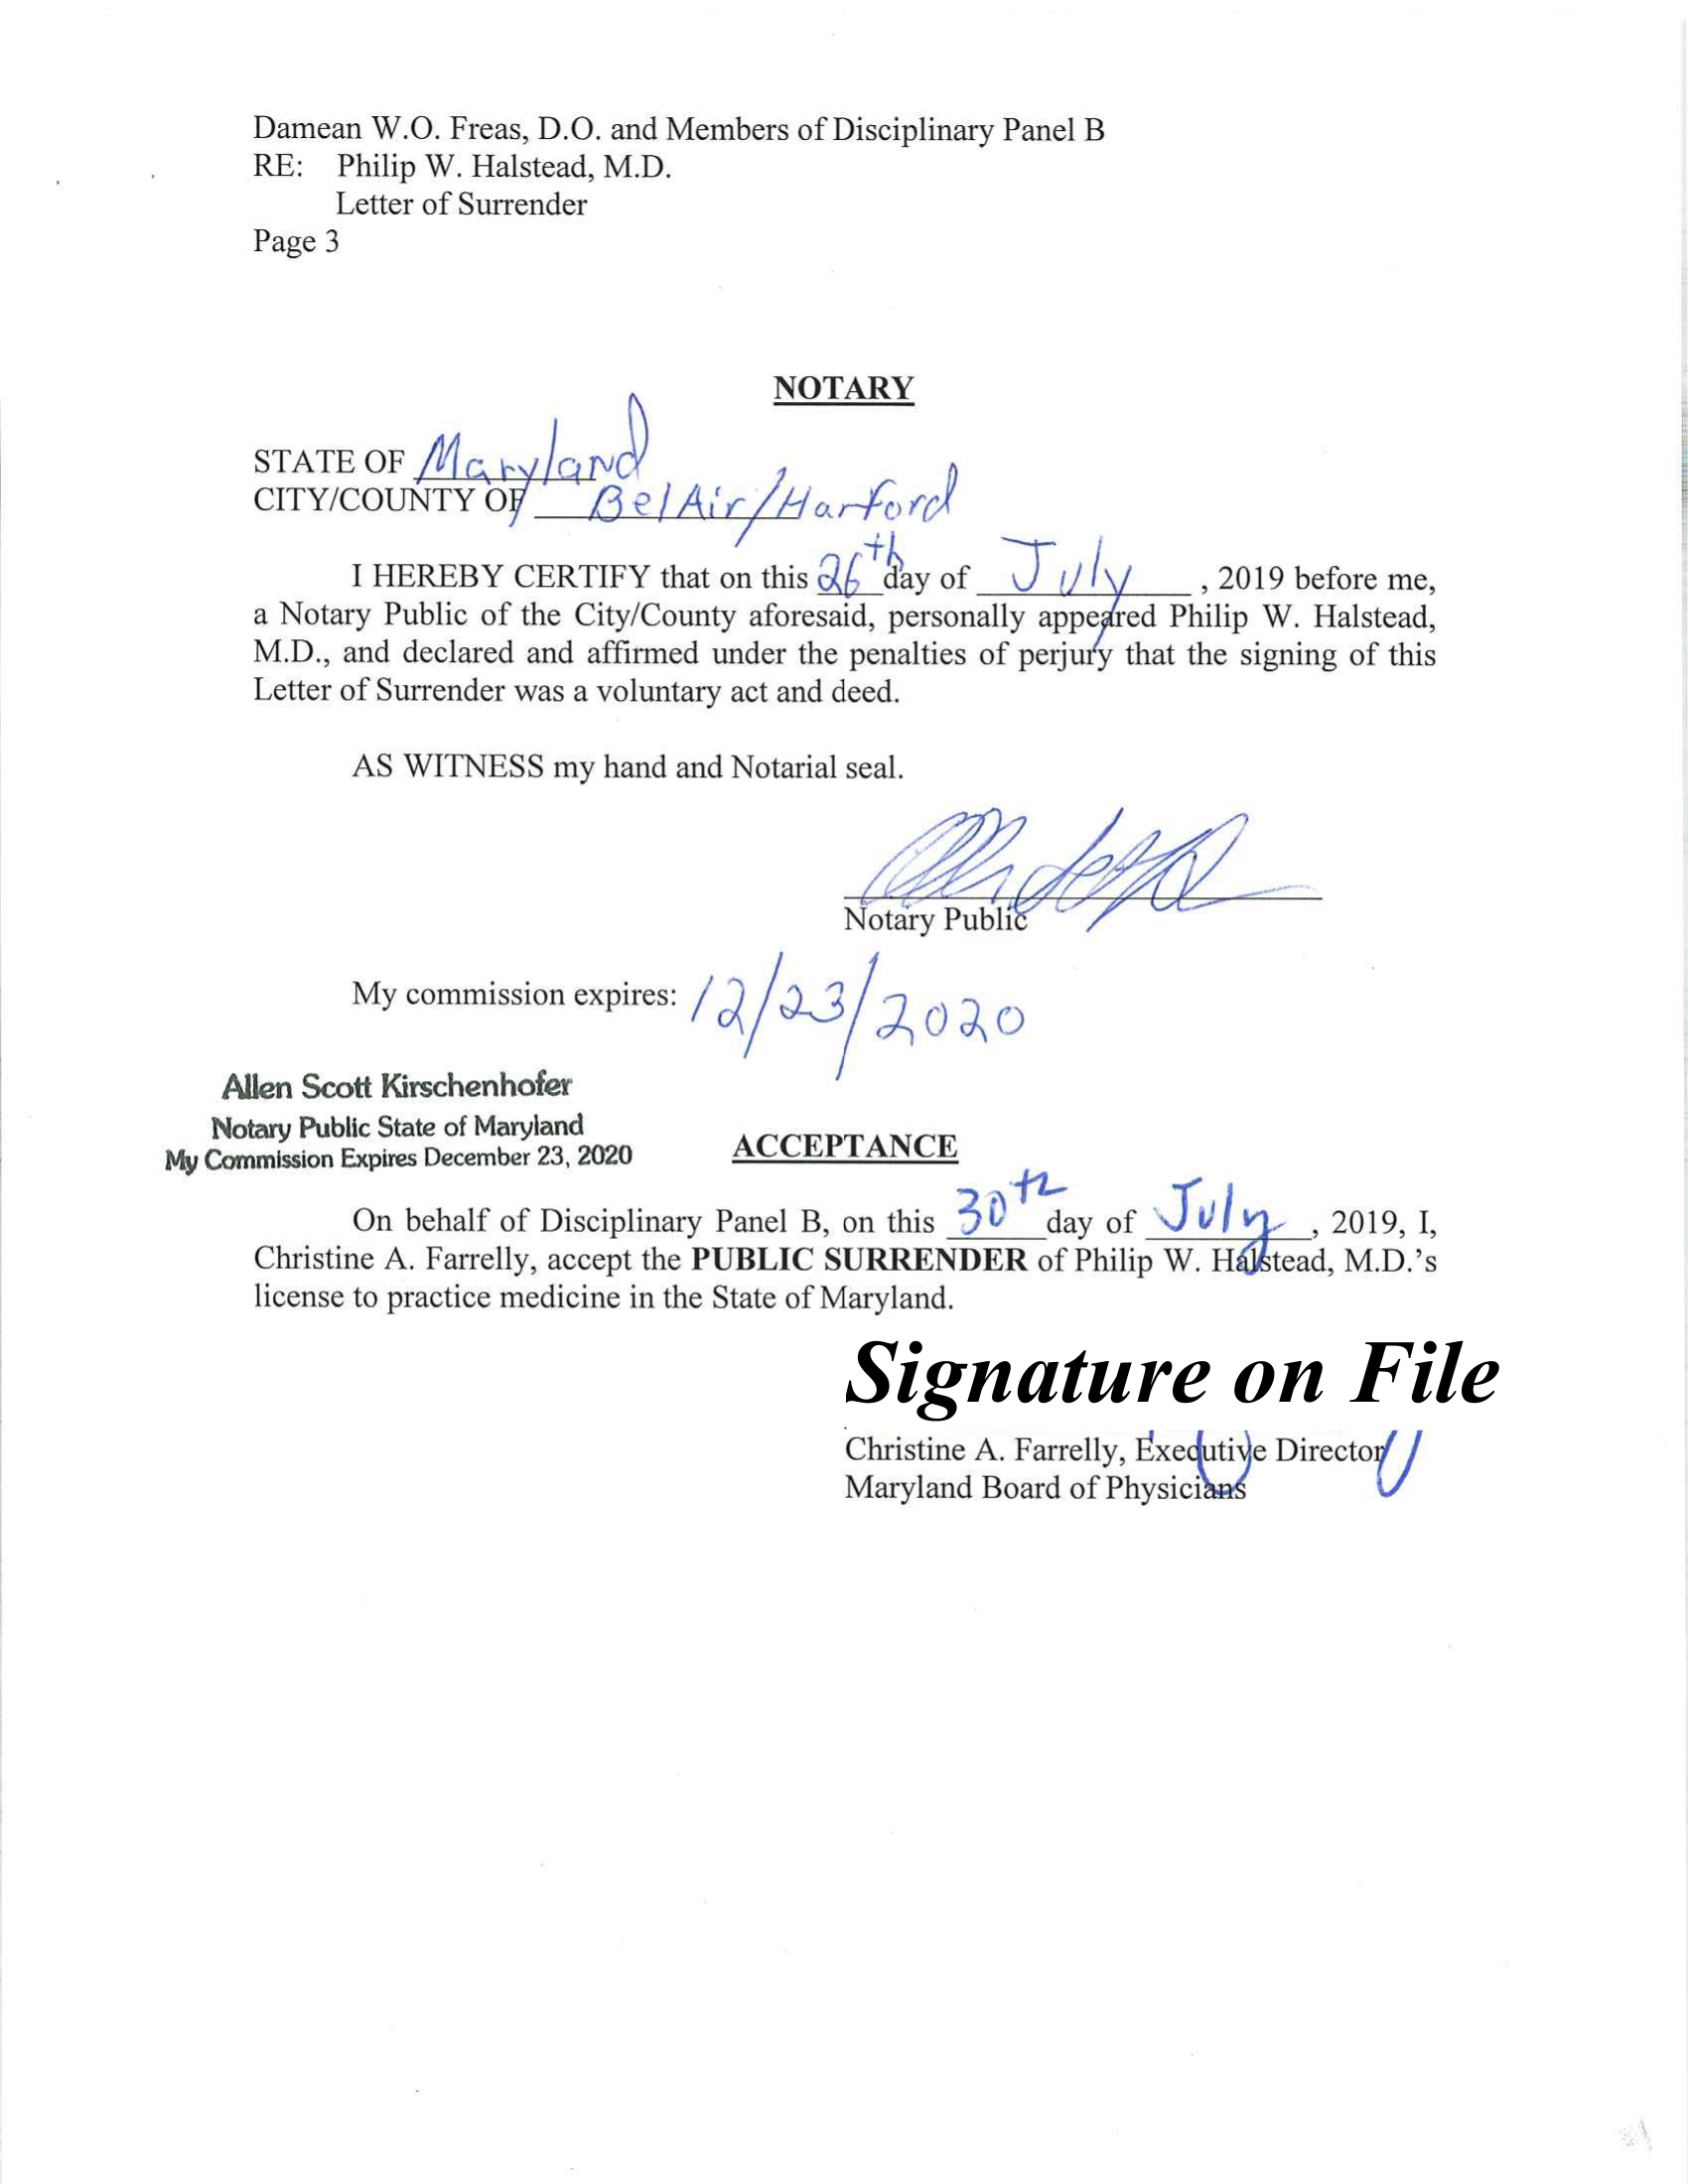 Damean W.O. Freas, D.O. and Members of Disciplinary Panel B
RE: Philip W. Halstead, M.D.
Letter of Surrender
Page 3
NOTARY
STATE OF Maryland
CITY/COUNTY OF Bel Air/Harford
I HEREBY CERTIFY that on this 26th day of July, 2019 before me,
a Notary Public of the City/County aforesaid, personally appeared Philip W. Halstead,
M.D., and declared and affirmed under the penalties of perjury that the signing of this
Letter of Surrender was a voluntary act and deed.
AS WITNESS my hand and Notarial seal.
Notary Public
My commission expires: 12/23/2020
Allen Scott Kirschenhofer
Notary Public State of Maryland
My Commission Expires December 23, 2020
ACCEPTANCE
On behalf of Disciplinary Panel B, on this 30th day of July, 2019, I,
Christine A. Farrelly, accept the PUBLIC SURRENDER of Philip W. Halstead, M.D.'s
license to practice medicine in the State of Maryland.
Signature on File
Christine A. Farrelly, Executive Director
Maryland Board of Physicians